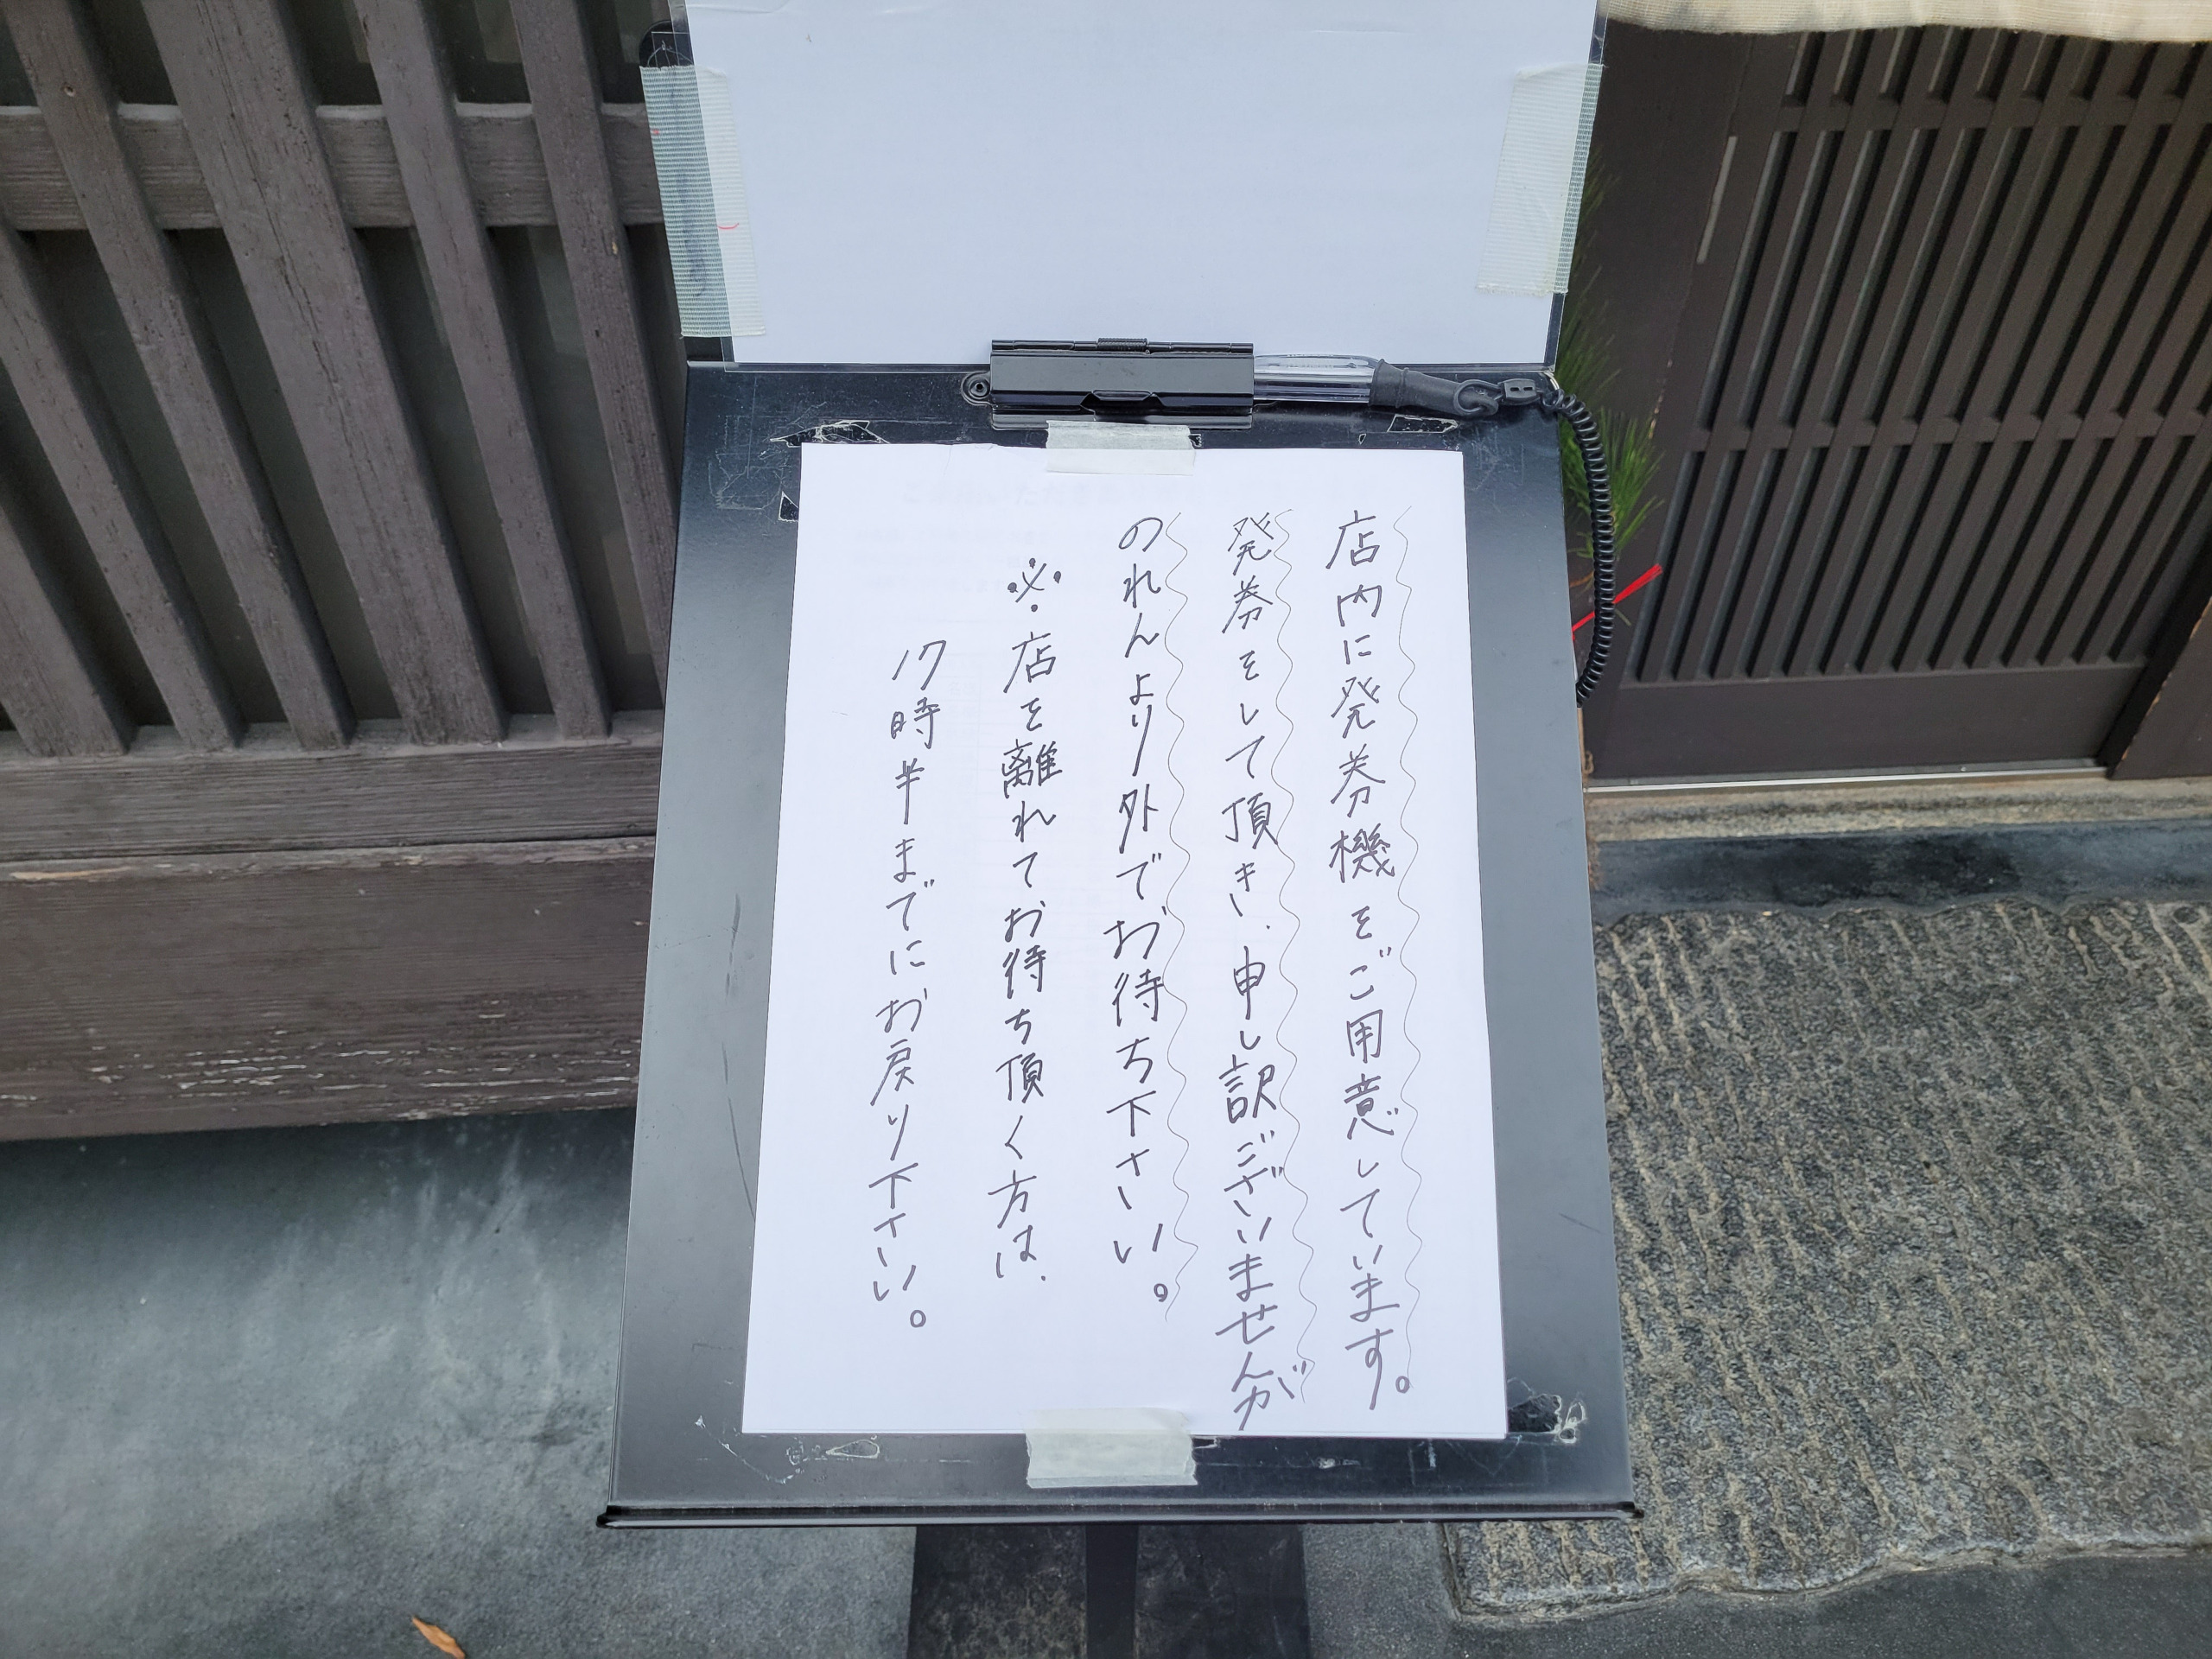 店内に発券機をご用意しています。
発券をして頂き、申し訳ございませんが
のれんより外でお待ち下さい。
※店を離れてお待ち頂く方は、
17時半までにお戻り下さい。